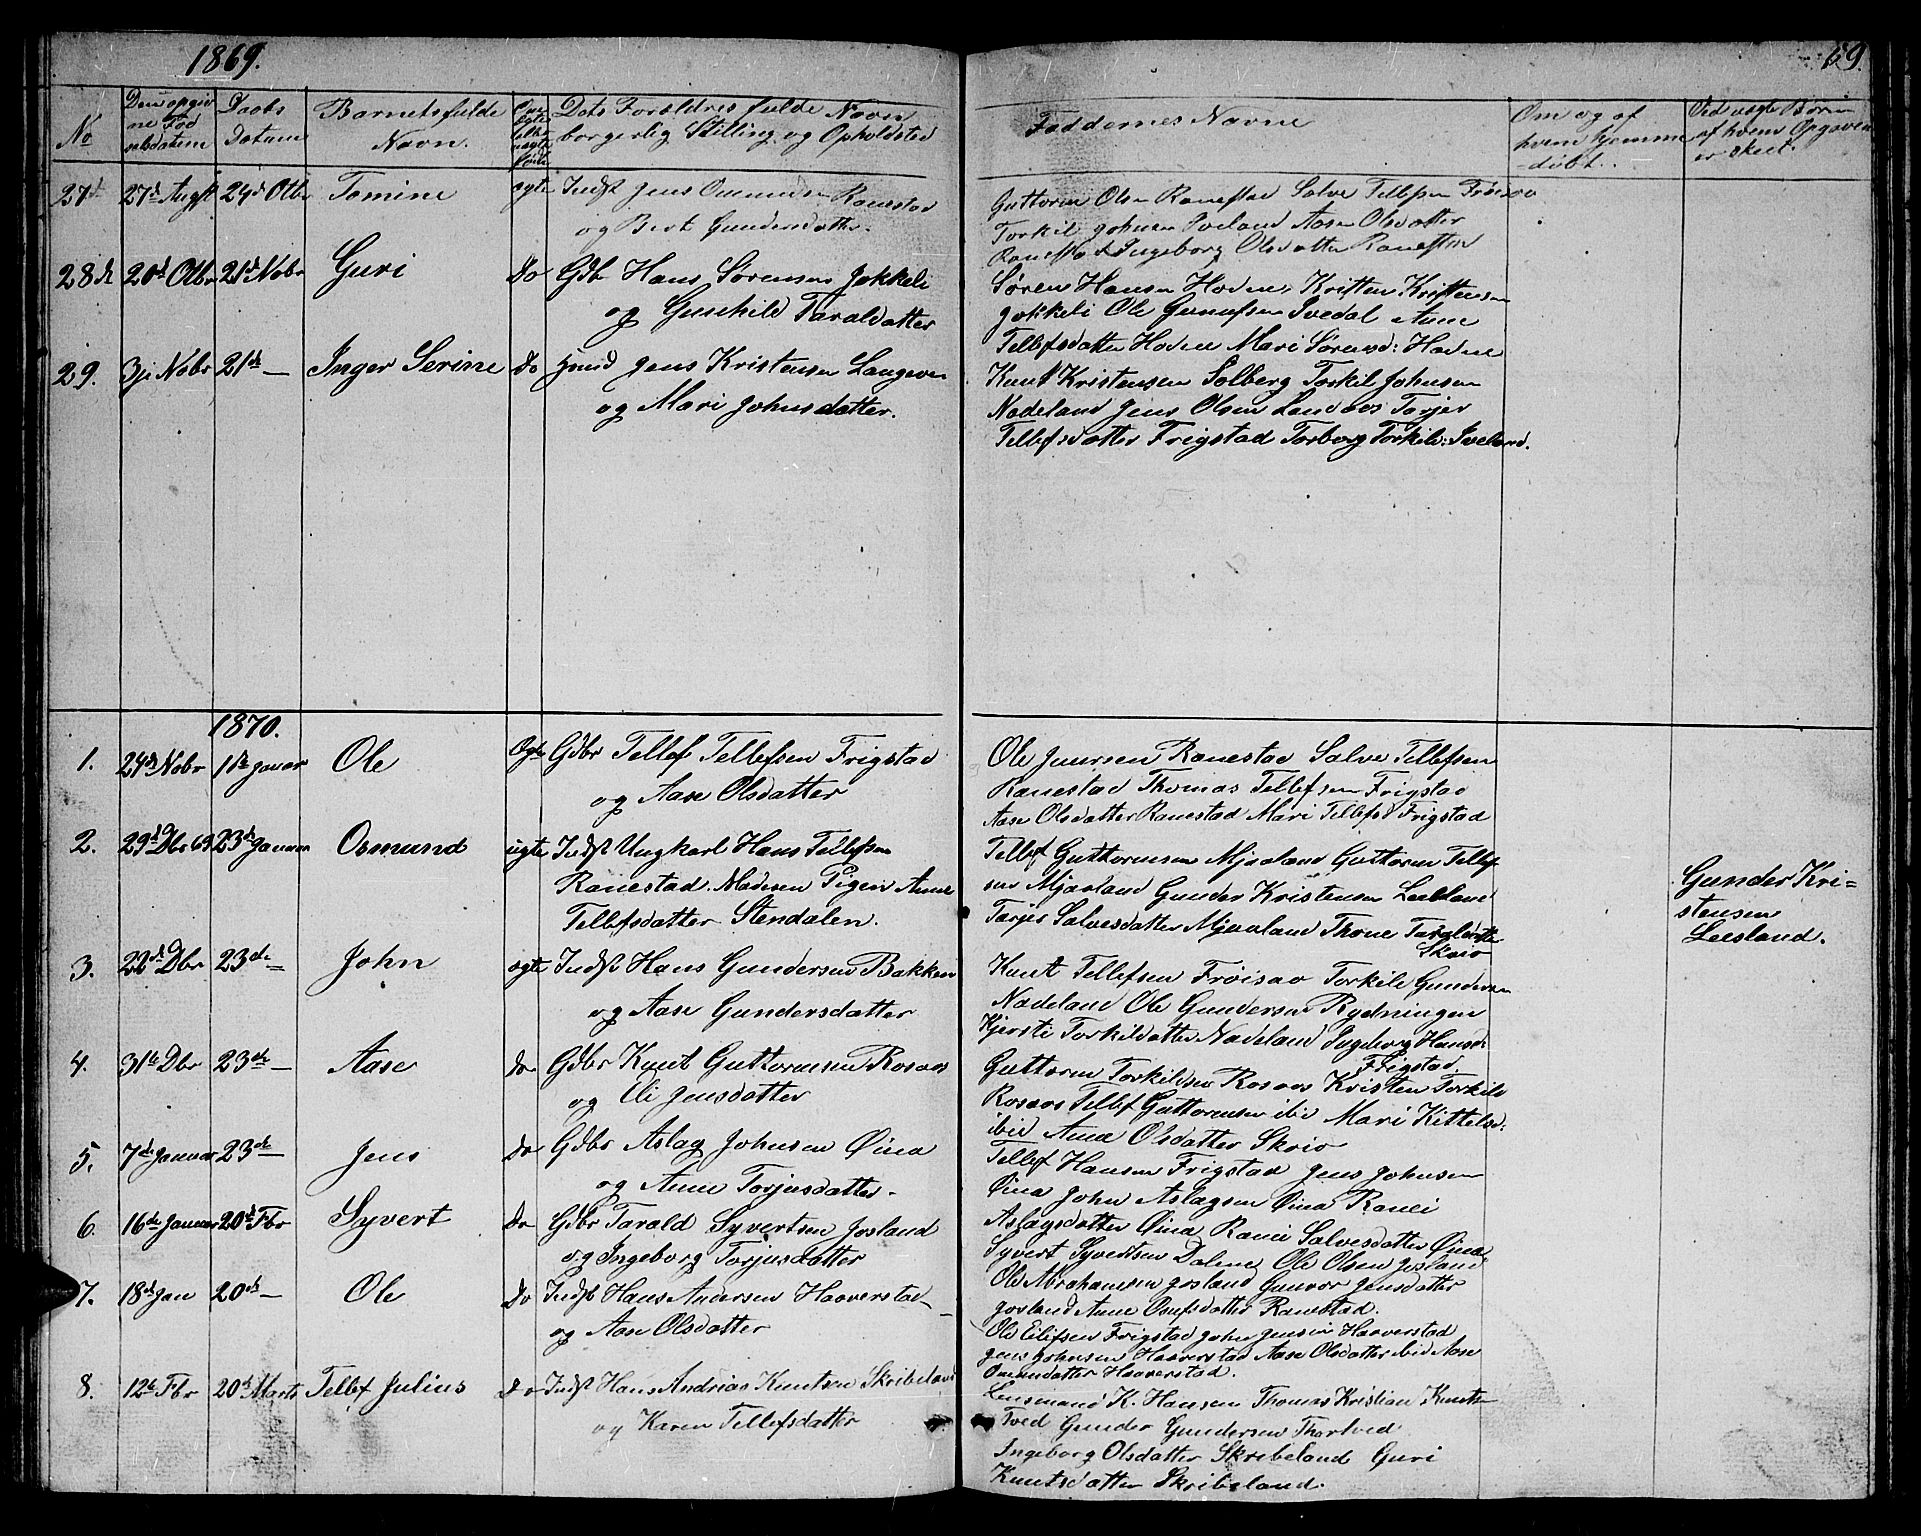 1869.
69.
No
Den opgiv
ne Fød
selsdatum
Daabs
Datum
Barnets fulde
Navn.
Dets Forældres fulde Navn
borgerlig Stilling og Opholdsted
Faddernes Navne
Om og af
hvem hjemme
døbt.
Ved uægte Børn
af hvem Opgaven
er skeet.
27d 27d Augst 24d Otbr Tomine ægte Indst Jens Omundsn Ranestad
og Bert Gundersdatter.
Guttorm Olsn Ranestad Salve Tellefsn Frøisaa
Torkil Johnsen Iveland Aase Olsdatter
Ranestad Ingeborg Olsdatter Ranestad
28de 20d Otbr 21d Nobr Guri Do Gdbr Hans Sørensen Jokkeli
og Gunhild Taraldsdatter
Søren Hansen Hodne, Kristen Kristensen
Jokkeli Ole Gunufsen Ivedal Anne
Tellefsdatter Hodne Mari Sørensd: Hodne
29. 3je Nobr 21de — Inger Serine do Jens Kristensen Langeven
og Mari Johnsdatter.
Knut Kristensen Solberg Torkil Johnsen
Nadeland Jens Olsen Landaas Torjer
Tellefsdatter Frigstad Torborg Torkils: Iveland.
1870.
1. 24de Nobr 1te Januar Ole Ægte Gdbr Tellef Tellefsen Frigstad
og Aase Olsdatter
Ole Ranestad Salve Tellefsen
Ranestad Thomas Tellefsen Frigstad
Aase Olsdatter Ranestad Mari Tellefsd Frigstad
2. 29d Dbr 69 23d Januar Osmund uægte Indst Ungkarl Hans Tellefsen
Ranestad. Pigen Anne
Tellefsdatter Stendalen.
Tellef Guttormsen Mjaaland Guttorm Tellef
sen Mjaaland Gunder Kristensen Leesland
Torjer Salvesdatter Mjaaland Thone Taraldsdtter
Skaio
Gunder Kri=
stensen
Leesland.
3. 22d Dbr 23de — John ægte Indst Hans Gundersen Bakken
og Aase Gundersdatter
Knut Tellefsen Frøisaa Torkild Gundersen
Nadeland Ole Gundersen Rydningen
Kjersti Torkildatter Nadeland Ingeborg Hansd:
Frigstad.
4. 31te Dbr 23de — Aase do Gdbr Knut Guttormsen Rosaas
og Eli Jensdatter
Guttorm Torkildsen Rosaas Kristen Torkils
Rosaas Tellef Guttormsen ibid Mari Kittelsd:
ibid Anne Olsdatter Skaio
5. 7de Januar 23de Jens do Gdbr Aslag Johnsen Øina
og Anne Torjusdatter.
Tellef Hansen Frigstad Jens Johnsen
Øina John Aslagsen Øina Ranei
Aslagsdatter Øina Ranei Salvesdatter Øina
6. 16de Januar 20de Fbr Syvert do Gdbr Tarald Syvertsen Josland
og Ingeborg Torjusdatter
Syvert Syvertsen Dalene Ole Olsen Josland
Ole Abrahamsen Josland Gunvor Jensdatter
Josland Anne Omfsdatter Ranestad.
7. 18de Jan 20de — Ole do Indst Hans Andersen Haaverstad
og Aase Olsdatter
Ole Eilifsen Frigstad John Jensen Haaverstad
Jens Johnsen Haaverstad Aase Olsdatter ibid Aase
Omundatter Haaverstad.
8. 12te Fbr 20de Marts Tellef Julius do Indst Hans Andrias Knutsen Skribeland
og Karen Tellefsdatter
Lensmand K. Hansen Thomas Kristian Knuts
Tved Gunder Gundersen Thortved
Ingeborg Olsdatter Skribeland Guri
Knutsdatter Skribeland.